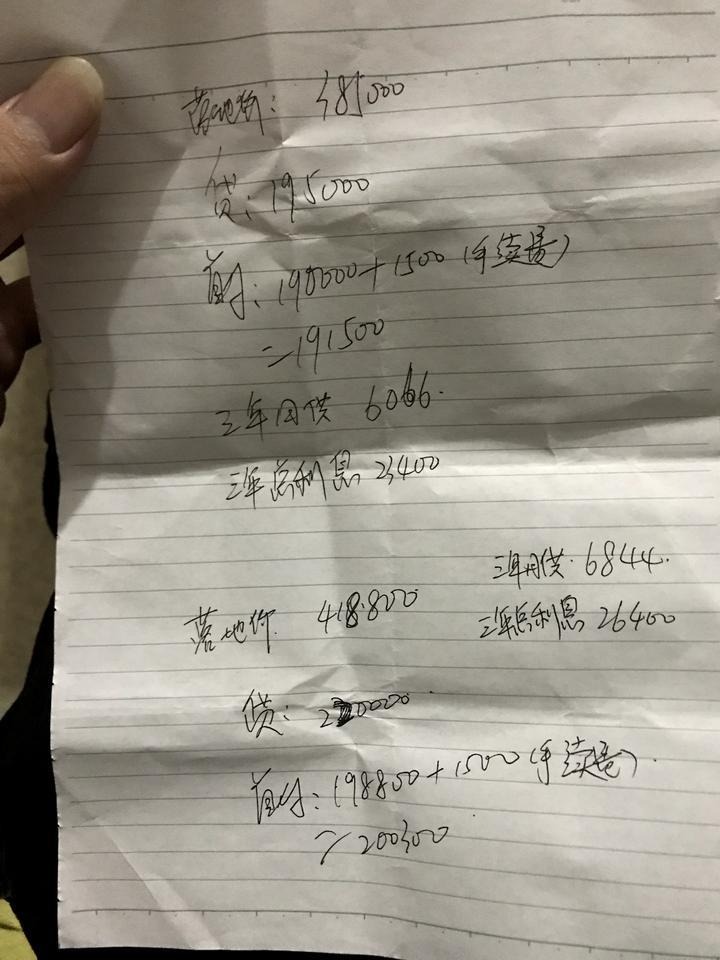 落地价: 385000
贷: 195000
首付: 190000+1500(手续费)
=191500
三年月供 6066.
三年总利息 23400
三年月供. 6844.
落地价 418.800
三年总利息 26400
贷: 220000
首付: 198800+1500(手续费).
=200300